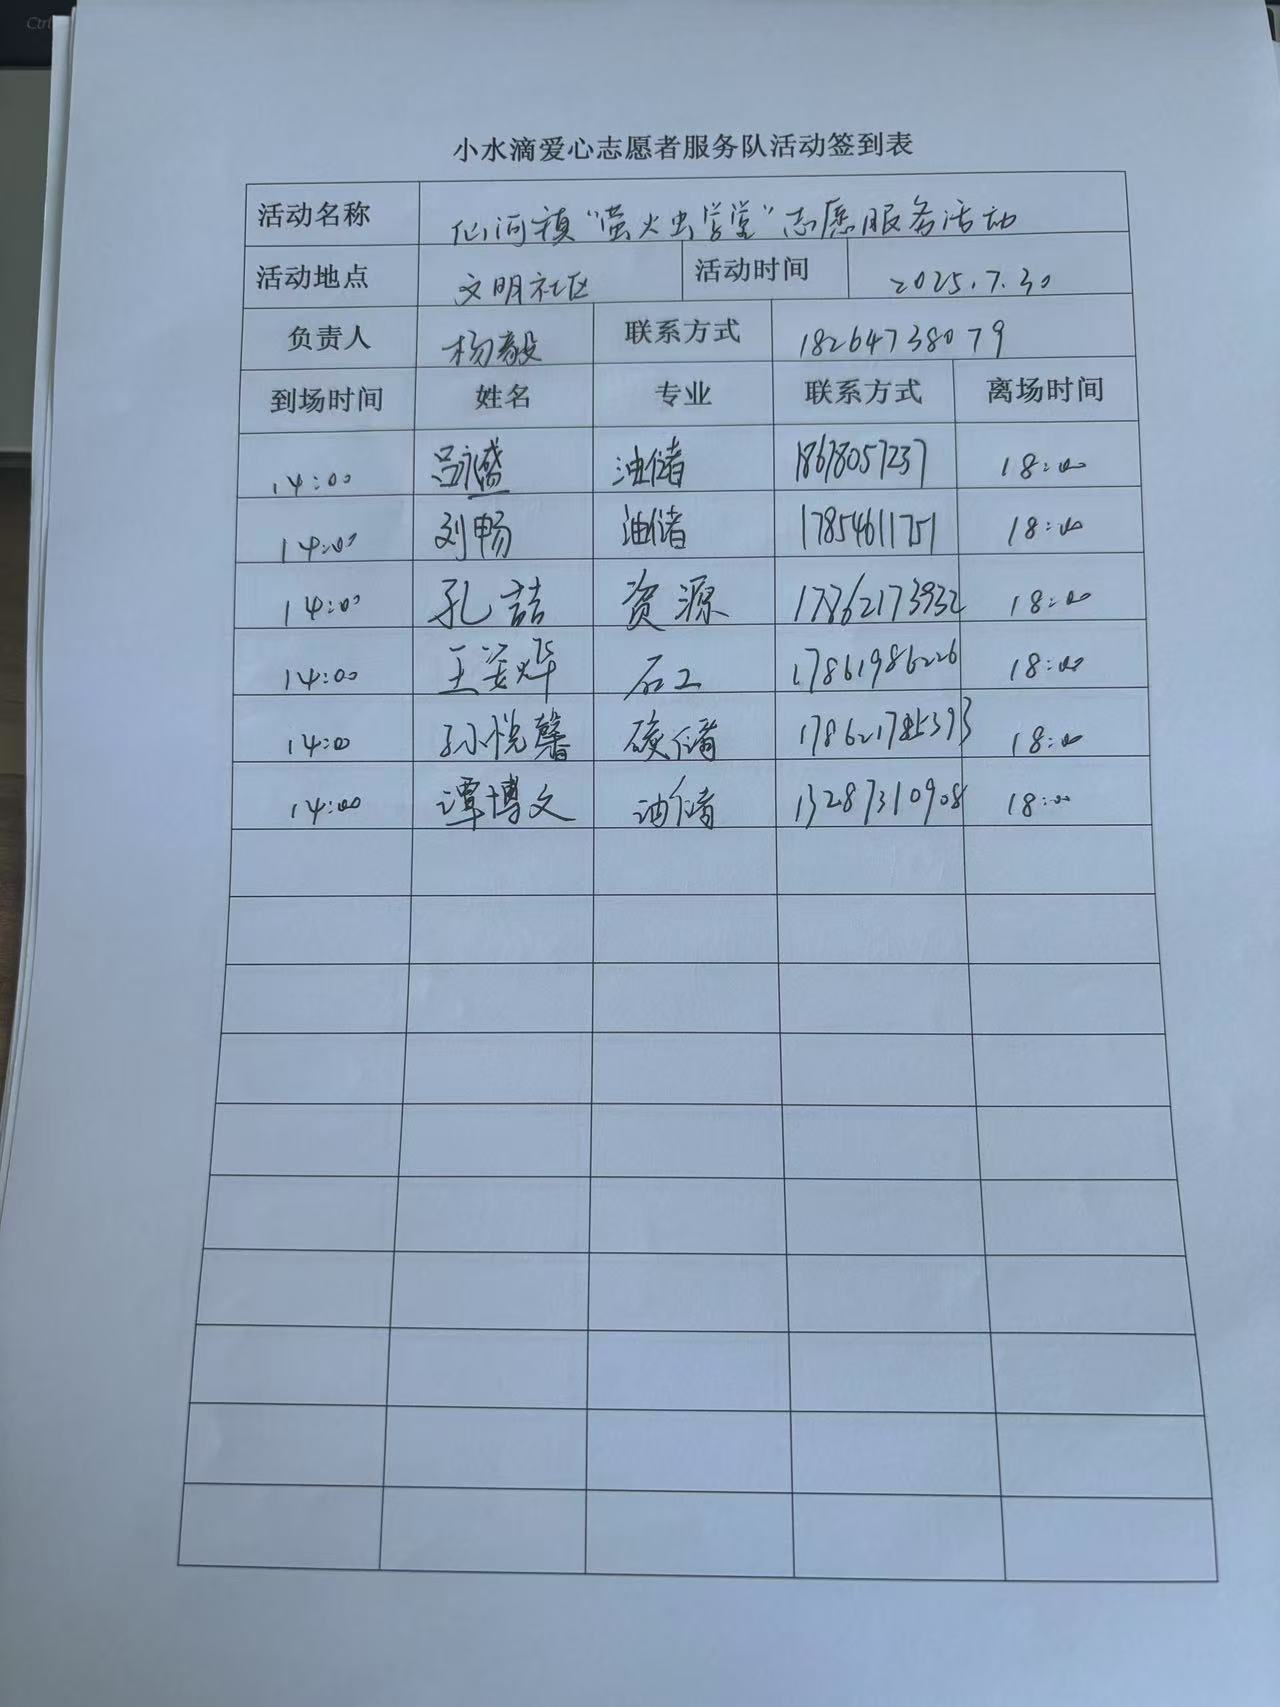 Ctrl
小水滴爱心志愿者服务队活动签到表
活动名称 仙河镇“萤火虫学堂”志愿服务活动
活动地点 文明社区 活动时间 2025.7.30
负责人 杨毅 联系方式 18264738079
到场时间 姓名 专业 联系方式 离场时间
14:00 吕永盛 油储 18678057237 18:00
14:00 刘畅 油储 17854611751 18:00
14:00 孔喆 资源 17862173932 18:00
14:00 王姿烨 石工 17861986226 18:00
14:00 孙悦馨 碳储 18:00
14:00 谭博文 油储 13287310908 18:00